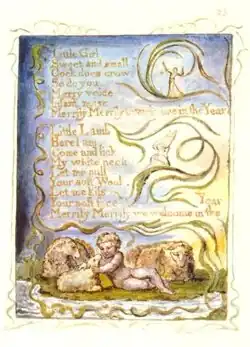 Little Girl
Sweet and small
Cock does crow
So do you
Merry voice
Infant noise
Merrily Merrily to welcome in the Year
Little Lamb
Here I am
Come and lick
My white neck
Let me pull
Your soft Wool
Let me kiss
Your soft face
Merrily Merrily we welcome in the Year